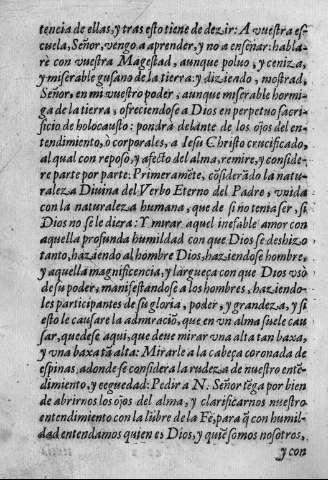 tencia de ellas, y tras esto tiene de dezir: A vuestra es
cuela, Señor, vengo a aprender, y no a enseñar: habla-
rè con vuestra Magestad, aunque poluo, y ceniza,
y miserable gusano de la tierra: y diziendo, mostrad,
Señor, en mi vuestro poder, aunque miserable hormi-
ga de la tierra, ofreciendose a Dios en perpetuo sacri-
ficio de holocausto: pondrà delante de los ojos del en-
tendimiento, ò corporales, a Iesu Christo crucificado,
al qual con reposo, y afecto del alma, remire, y conside-
re parte por parte: Primeramēte, cōsiderādo la natu-
raleza Diuina del Verbo Eterno del Padre, vnida
con la naturaleza humana, que de si no tenia ser, si
Dios no se le diera: Y mirar aquel inefable amor con
aquella profunda humildad con que Dios se deshizo
tanto, haziendo al hombre Dios, haziendose hombre,
y aquella magnificencia, y largueça con que Dios vsò
de su poder, manifestandose a los hombres, haziendo-
les participantes de su gloria, poder, y grandeza, y si
esto le causare la admiraciō, que en vn alma suele cau
sar, quedese aqui, que deue mirar vna alta tan baxa,
y vna baxa tā alta: Mirarle a la cabeça coronada de
espinas, adonde se considera la rudeza de nuestro entē-
dimiento, y ceguedad: Pedir a N. Señor tēga por bien
de abrirnos los ojos del alma, y clarificarnos nuestro
entendimiento con la lūbre de la Fè, para q̄ con humil-
dad entendamos quien es Dios, y quiē somos nosotros,
y con